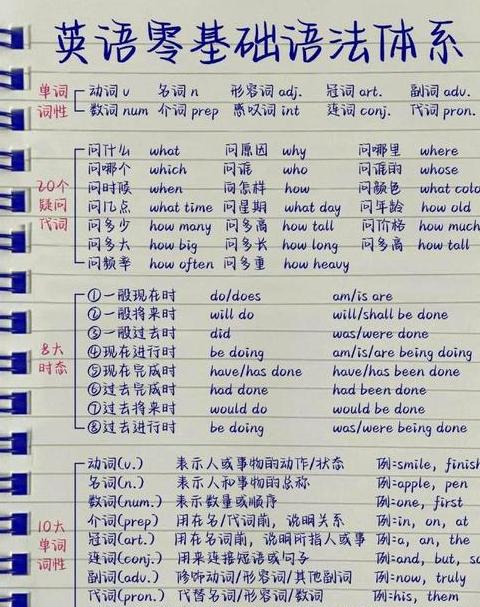 英语零基础语法体系
单词词性
动词 v 名词 n 形容词 adj. 冠词 art. 副词 adv.
数词 num 介词 prep 感叹词 int 连词 conj. 代词 pron.
20个疑问代词
问什么 what 问原因 why 问哪里 where
问哪个 which 问谁 who 问谁的 whose
问时候 when 问怎样 how 问颜色 what colo
问几点 what time 问星期 what day 问年龄 how old
问多少 how many 问多高 how tall 问价格 how much
问多大 how big 问多长 how long 问多高 how tall
问频率 how often 问多重 how heavy
8大时态
①一般现在时 do/does am/is are
②一般将来时 will do will/shall be done
③一般过去时 did was/were done
④现在进行时 be doing am/is/are being doing
⑤现在完成时 have/has done have/has been done
⑥过去完成时 had done had been done
⑦过去将来时 would do would be done
⑧过去进行时 be doing was/were being done
10大单词词性
动词(v.) 表示人或事物的动作/状态 例=smile, finish
名词(n.) 表示人和事物的总称 例=apple, pen
数词(num.) 表示数量或顺序 例=one, first
介词(prep) 用在名/代词前，说明关系 例=in, on, at
冠词(art.) 用在名词前，说明所指人或事 例=a, an, the
连词(conj.) 用来连接短语或句子 例=and, but, so
副词(adv.) 修饰动词/形容词/其他副词 例=now, truly
代词(pron.) 代替名词/形容词/数词 例=his, them